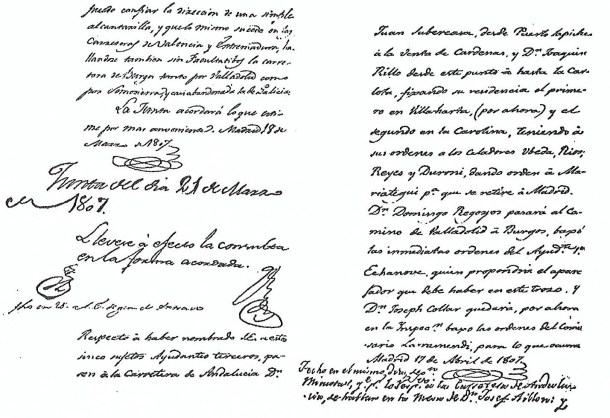 puede confiar la direccion de una simple
alcantarilla, y que lo mismo sucede en las
Carreteras de Valencia y Extremadura, ha
llandose tambien sin Facultativo la carrete
ra de Burgos tanto por Valladolid como
por Somosierra, y casi abandonada la de Galicia
La Junta acordará lo que esti
me por mas conveniente. Madrid 18 de
Marzo de 1807.
Junta del dia 21 de Marzo
de 1807.
Llevese á efecto la consulta
en la forma acordada.
fho en 25.
Respecto á haber nombrado S.M. estos
cinco sujetos Ayudantes terceros, pa
sen á la Carretera de Andalucia Dn.
Juan Subercase, desde Puerto Lapiche
á la venta de Cardenas, y Dn. Joaquin
Rillo desde este punto á hasta la Car
lota, fixando su residencia el prime
ro en Villaharta, (por ahora) y el
segundo en la Carolina, teniendo á
sus ordenes a los celadores Ubeda, Rios,
Reyes y Duroni, dando orden á Ma
riategui pa. que se retire á Madrid.
Dn. Domingo Regoyos pasará al Ca
mino de Valladolid á Burgos, baxo
las inmediatas ordenes del Ayudte. 1º
Echanove, quien propondria el apare
jador que debe haber en este trozo. Y
Dn. Joseph Collar quedaria, por ahora
en la Inspecn. baxo las ordenes del Comi
sario Larramendi, para lo que ocurra
Madrid 17 de Abril de 1807.
Fecho en el mismo dia, segn.
Minutas, y pr. lo respo. a las Carreteras de Andalu
cia, se hallan en la Mesa de Dn. Josef Aillon